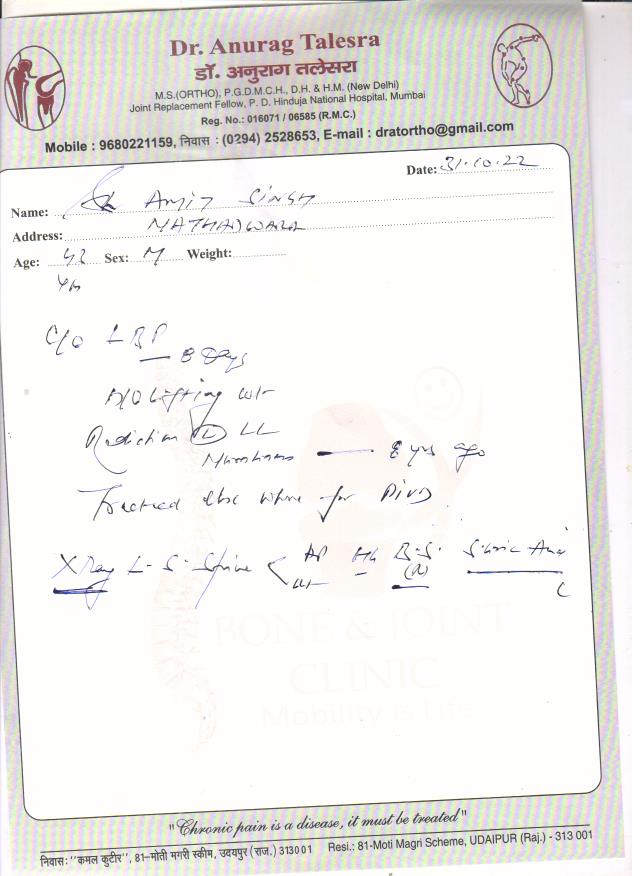 Dr. Anurag Talesra
डॉ. अनुराग तलेसरा
M.S.(ORTHO), P.G.D.M.C.H., D.H. & H.M. (New Delhi)
Joint Replacement Fellow, P. D. Hinduja National Hospital, Mumbai
Reg. No.: 016071 / 06585 (R.M.C.)
Mobile : 9680221159, निवास : (0294) 2528653, E-mail : dratortho@gmail.com
Date: 31.10.22
Name: AMIT SINGH
Address: NATHADWARA
Age: 42 Sex: M Weight:
Yrs
C/O LBP
8 Days
H/O Lifting wt
Radiation (L) LL
Numbness 8 yrs ago
Treated else where for PIVD
X Ray L-S-Spine AP Hb B.S. S. Uric Acid
(R)
BONE & JOINT
CLINIC
Mobility is Life
"Chronic pain is a disease, it must be treated"
निवास: "कमल कुटीर", 81-मोती मगरी स्कीम, उदयपुर (राज.) 313001 Resi.: 81-Moti Magri Scheme, UDAIPUR (Raj.) - 313 001